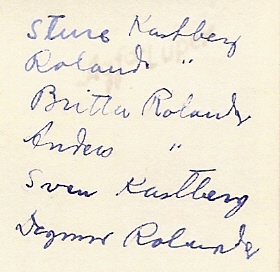 Sture Kastberg
Rolands "
Britta Rolander
Anders "
Sven Kastberg
Dagmar Rolander